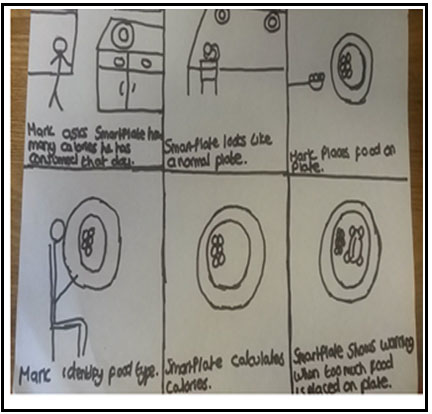 Mark asks SmartPlate how
many calories he has
consumed that day.
SmartPlate looks like
a normal plate.
Mark places food on
Plate.
Mark identify food type.
SmartPlate calculates
calories.
SmartPlate shows warning
when too much food
is placed on plate.